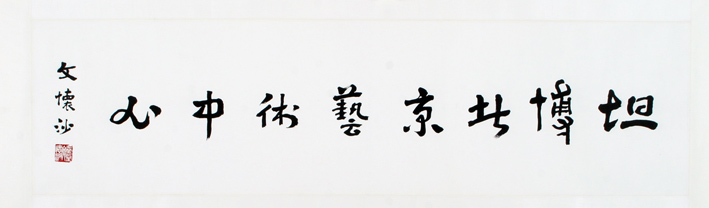 坦博北京藝術中心
文懷沙